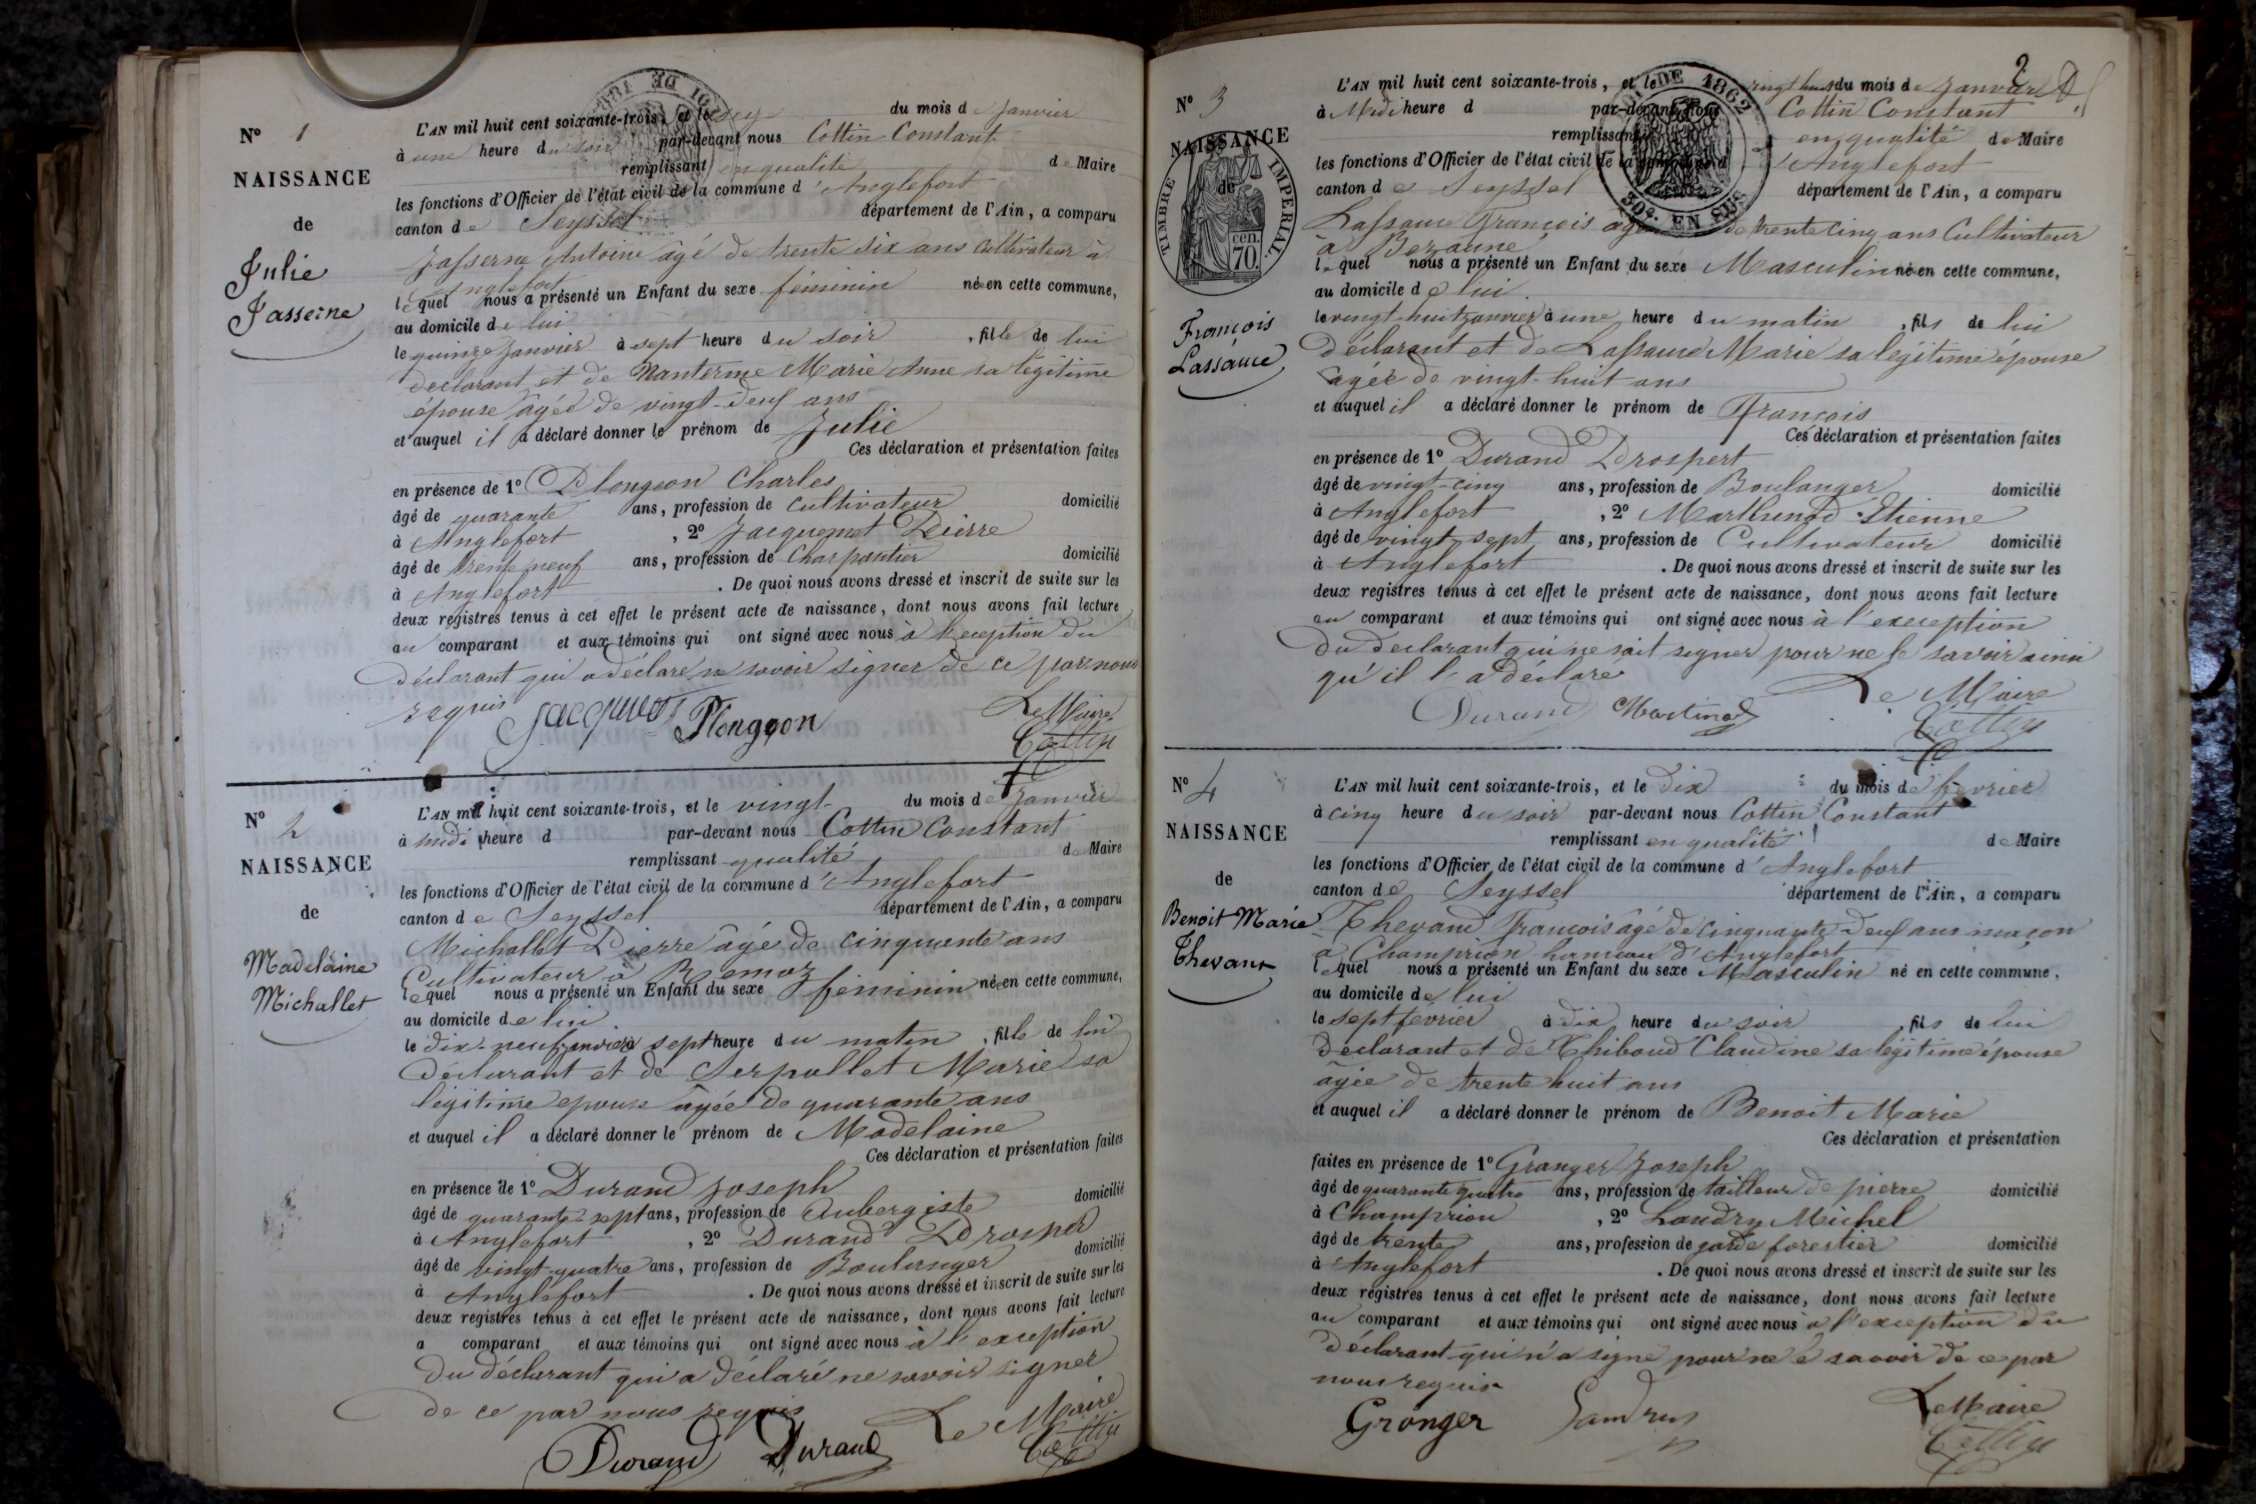 N° 1
NAISSANCE
de
Julie
Jasserne
L'AN mil huit cent soixante-trois, et le du mois de Janvier
à une heure du soir par-devant nous Cottin Constant
remplissant en qualité de Maire
les fonctions d'Officier de l'état civil de la commune d'Anglefort
canton de Seyssel département de l'Ain, a comparu
Jasserne Antoine âgé de trente six ans cultivateur à
Anglefort
lequel nous a présenté un Enfant du sexe féminin née en cette commune,
au domicile de lui
le quinze Janvier à sept heure du soir, fille de lui
déclarant et de Nanterme Marie Anne sa légitime
épouse âgée de vingt-deux ans
et auquel il a déclaré donner le prénom de Julie
Ces déclaration et présentation faites
en présence de 1° Plongeon Charles
âgé de quarante ans, profession de cultivateur domicilié
à Anglefort, 2° Jacquemet Pierre
âgé de trente neuf ans, profession de Charpentier domicilié
à Anglefort. De quoi nous avons dressé et inscrit de suite sur les
deux registres tenus à cet effet le présent acte de naissance, dont nous avons fait lecture
au comparant et aux témoins qui ont signé avec nous à l'exception du
déclarant qui a déclaré ne savoir signer de ce par nous
requis
Plongeon
Le Maire
Cottin
N° 2
NAISSANCE
de
Madelaine
Michallet
L'AN mil huit cent soixante-trois, et le vingt du mois de Janvier
à midi heure d par-devant nous Cottin Constant
remplissant qualité de Maire
les fonctions d'Officier de l'état civil de la commune d'Anglefort
canton de Seyssel département de l'Ain, a comparu
Michallet Pierre âgé de cinquante ans
Cultivateur à Remoz
lequel nous a présenté un Enfant du sexe féminin née en cette commune,
au domicile de lui
le dix-neuf janvier à sept heure du matin, fille de lui
déclarant et de Serpollet Marie sa
légitime épouse âgée de quarante ans
et auquel il a déclaré donner le prénom de Madelaine
Ces déclaration et présentation faites
en présence de 1° Durand Joseph
âgé de quarante-sept ans, profession de Aubergiste domicilié
à Anglefort, 2° Durand Prosper
âgé de vingt-quatre ans, profession de Boulanger domicilié
à Anglefort. De quoi nous avons dressé et inscrit de suite sur les
deux registres tenus à cet effet le présent acte de naissance, dont nous avons fait lecture
a comparant et aux témoins qui ont signé avec nous à l'exception
du déclarant qui a déclaré ne savoir signer
de ce par nous requis
Le Maire
Durand Durand Cottin
2
N° 3
NAISSANCE
de
TIMBRE IMPERIAL
70 cen.
DE 1862
50c. EN SUS
François
Lassauce
L'AN mil huit cent soixante-trois, et le vingt huit du mois de Janvier
à Midi heure d par-devant nous Cottin Constant
remplissant en qualité de Maire
les fonctions d'Officier de l'état civil de la commune d'Anglefort
canton de Seyssel département de l'Ain, a comparu
Lassauce François âgé de trente cinq ans Cultivateur
à Bezonne
lequel nous a présenté un Enfant du sexe Masculin né en cette commune,
au domicile de lui.
le vingt-huit janvier à une heure du matin, fils de lui
déclarant et de Lassauce Marie sa légitime épouse
âgée de vingt-huit ans
et auquel il a déclaré donner le prénom de François
Ces déclaration et présentation faites
en présence de 1° Durand Prospert
âgé de vingt-cinq ans, profession de Boulanger domicilié
à Anglefort, 2° Marthinod Etienne
âgé de vingt sept ans, profession de Cultivateur domicilié
à Anglefort. De quoi nous avons dressé et inscrit de suite sur les
deux registres tenus à cet effet le présent acte de naissance, dont nous avons fait lecture
au comparant et aux témoins qui ont signé avec nous à l'exception
du déclarant qui ne sait signer pour ne le savoir ainsi
qu'il l'a déclaré
Le Maire
Durand Martinod Cottin
N° 4
NAISSANCE
de
Benoit Marie
Thevant
L'AN mil huit cent soixante-trois, et le dix du mois de fevrier
à cinq heure du soir par-devant nous Cottin Constant
remplissant en qualité de Maire
les fonctions d'Officier de l'état civil de la commune d'Anglefort
canton de Seyssel département de l'Ain, a comparu
Thevand François âgé de cinquante-deux ans maçon
à Champrion hameau d'Anglefort
lequel nous a présenté un Enfant du sexe Masculin né en cette commune,
au domicile de lui
le sept fevrier à dix heure du soir, fils de lui
déclarant et de Thiboud Claudine sa légitime épouse
âgée de trente huit ans
et auquel il a déclaré donner le prénom de Benoit Marie
Ces déclaration et présentation
faites en présence de 1° Granger Joseph
âgé de quarante quatre ans, profession de tailleur de pierre domicilié
à Champrion, 2° Landry Michel
âgé de trente ans, profession de garde forestier domicilié
à Anglefort. De quoi nous avons dressé et inscrit de suite sur les
deux registres tenus à cet effet le présent acte de naissance, dont nous avons fait lecture
au comparant et aux témoins qui ont signé avec nous a l'exception du
déclarant qui n'a signé pour ne le savoir de ce par
nous requis
Granger Le Maire
Cottin